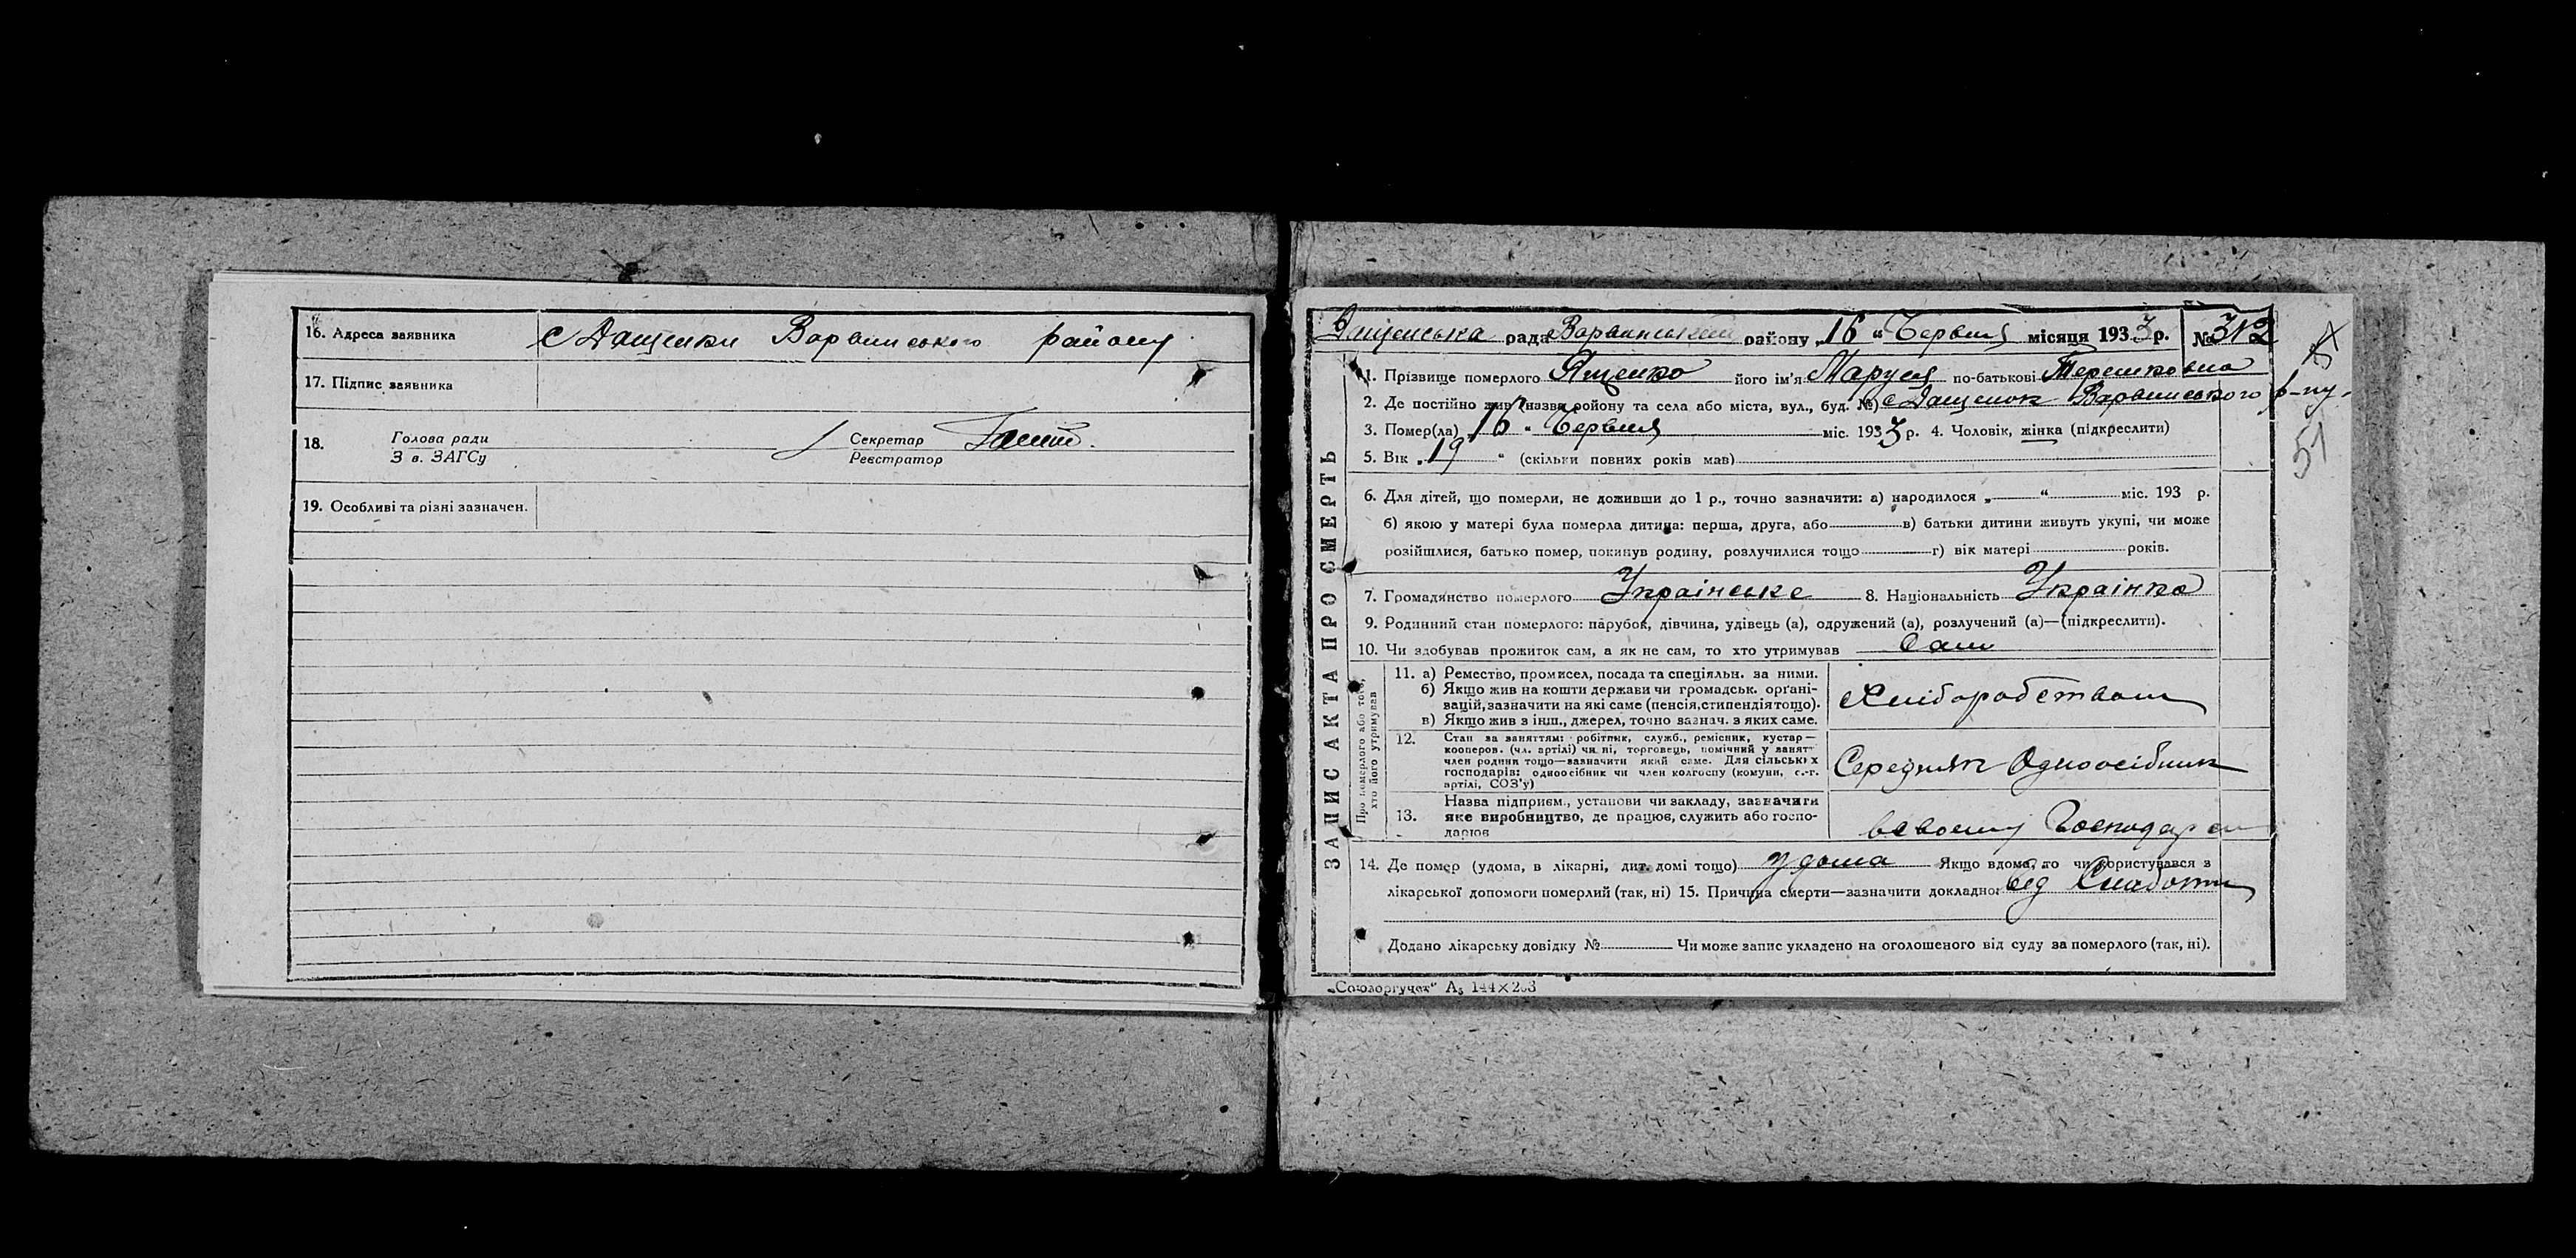 16. Адреса заявника с Дащенки Варвинського району
17. Підпис заявника
18. Голова ради Секретар
З в. ЗАГСу Реєстратор
19. Особливі та різні зазначен.
Дащенська рада Варвинський району „16 “ Червня місяця 1933 р. № 312
51
1. Прізвище померлого Ященко його ім'я Маруся по-батькові Терешковна
2. Де постійно жив (назва району та села або міста, вул., буд. №) с Дащенок Варвинського р-ну.
3. Помер(ла) „16 “ Червня міс. 1933 р. 4. Чоловік, жінка (підкреслити)
51
5. Вік „ 19 “ (скільки повних років мав)
6. Для дітей, що померли, не доживши до 1 р., точно зазначити: а) народилося „ “ міс. 193 р.
б) якою у матері була померла дитина: перша, друга, або в) батьки дитини живуть укупі, чи може
розійшлися, батько помер, покинув родину, розлучилися тощо г) вік матері років.
7. Громадянство померлого Українське 8. Національність Українка
9. Родинний стан померлого: парубок, дівчина, удівець (а), одружений (а), розлучений (а)—(підкреслити).
10. Чи здобував прожиток сам, а як не сам, то хто утримував Сам
ЗАПИС АКТА ПРО СМЕРТЬ
Про померлого або того,
хто його утримував
11. а) Ремество, промисел, посада та спеціяльн. за ними.
б) Якщо жив на кошти держави чи громадськ. орґані-
зацій, зазначити на які саме (пенсія, стипендія тощо).
в) Якщо жив з інш., джерел, точно зазнач. з яких саме.
Хліборобством
12. Стан за заняттям: робітник, служб., ремісник, кустар—
кооперов. (чл. артілі) чи ні, торговець, помічний у занят
член родини тощо—зазначити який саме. Для сільських
господарів: одноосібник чи член колгоспу (комуни, с.-г.
артілі, СОЗ'у)
Середняк Одноосібник
13. Назва підприєм., установи чи закладу, зазначити
яке виробництво, де працює, служить або госпо-
дарює
в своєму
14. Де помер (удома, в лікарні, дит. домі тощо) удома Якщо вдома, то чи користувався з
лікарської допомоги померлий (так, ні) 15. Причина смерти—зазначити докладно: від Слаботи
Додано лікарську довідку № Чи може запис укладено на оголошеного від суду за померлого (так, ні).
„Союзоргучет“ А₅ 144×203